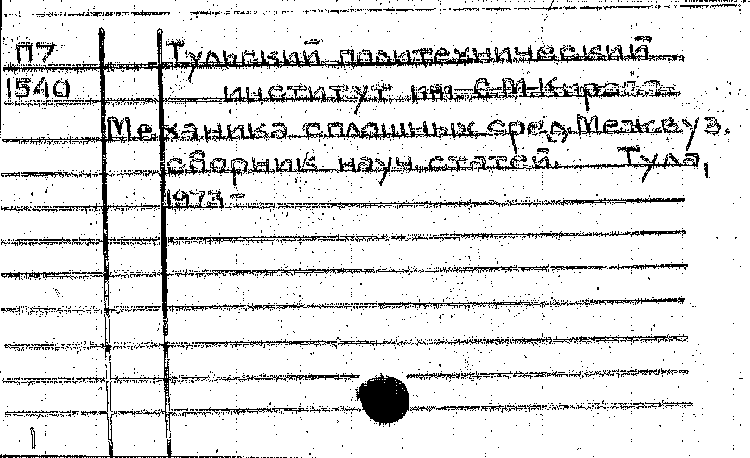 П7 Тульский политехнический
1540 институт им. С.М.Кирова.
Механика сплошных сред. Межвуз.
сборник науч. статей. Тула,
1973-
1